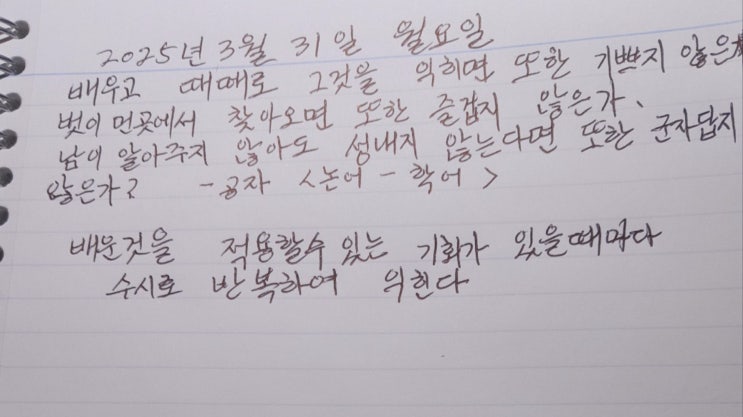 2025년 3월 31일 월요일
배우고 때때로 그것을 익히면 또한 기쁘지 않은가
벗이 먼곳에서 찾아오면 또한 즐겁지 않은가.
남이 알아주지 않아도 성내지 않는다면 또한 군자답지
않은가? - 공자 <논어 - 학어>
배운것을 적용할수 있는 기회가 있을때마다
수시로 반복하여 익힌다